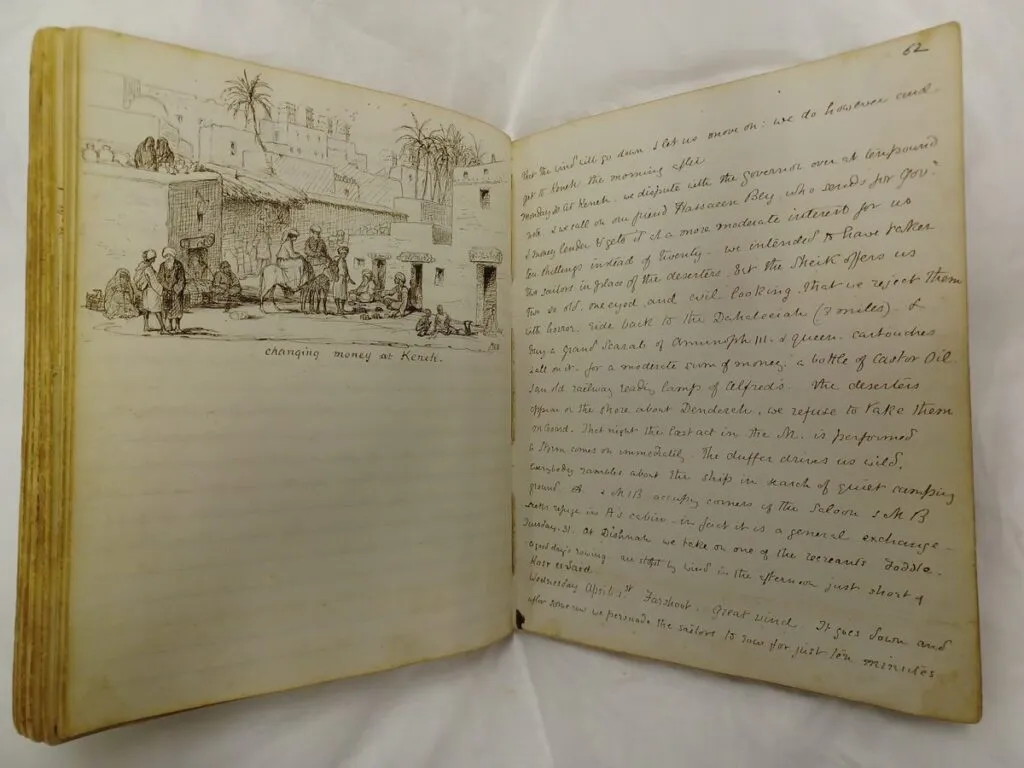 changing money at Keneh.
62
that the wind will go down & let us move on: we do however and
get to Keneh the morning after
Monday 30 at Keneh. we dispute with the governor over a ten pound
note & we call on our friend Hassaeen Bey who sends for Gov.
& money lender & gets it at a more moderate interest for us
ten shillings instead of twenty. we intended to have taken
two sailors in place of the deserters but the Sheik offers us
two so old, one eyed, and evil looking, that we reject them
with horror. ride back to the Dahabeeiah (2 miles). &
buy a grand Scarab of Amunoph III. & queen. cartouches
all on it. for a moderate sum of money; a bottle of Castor Oil
& an old railway reading lamp of Alfred's. The deserters
appear on the shore about Dendereh, we refuse to take them
on board. That night the last act in the M. is performed
a storm comes on immediately. The duffer drives us wild,
everybody rambles about the ship in search of quiet camping
ground. & MB occupy corners of the Saloon & MB
seeks refuge in A's cabin - in fact it is a general exchange -
Tuesday. 31. At Dishnah we take on one of the recreants Toddle.
a good day's rowing. are stopt by wind in the afternoon just short of
Kasr es Saad.
Wednesday April 1st Farshout. Great wind. It goes down and
after some row we persuade the sailors to row for just ten minutes